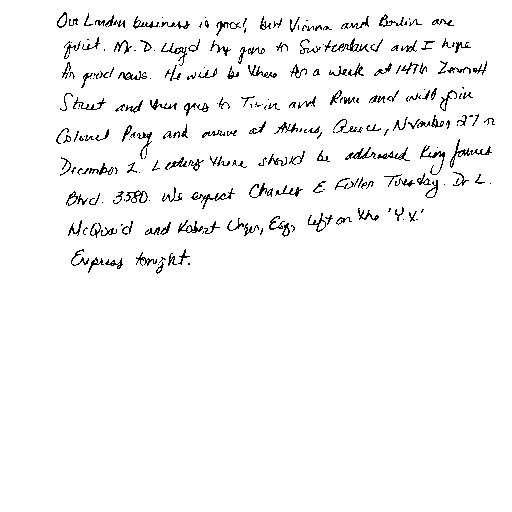 Our London business is good, but Vienna and Berlin are
quiet. Mr. D. Lloyd has gone to Switzerland and I hope
for good news. He will be there for a week at 1476 Zermott
Street and then goes to Turin and Rome and will join
Colonel Parry and arrive at Athens, Greece, November 27 or
December 2. Letters there should be addressed King James
Blvd. 3580. We expect Charles E. Fuller Tuesday. Dr. L.
McQuaid and Robert Unger, Esq., left on the 'Y.X.'
Express tonight.